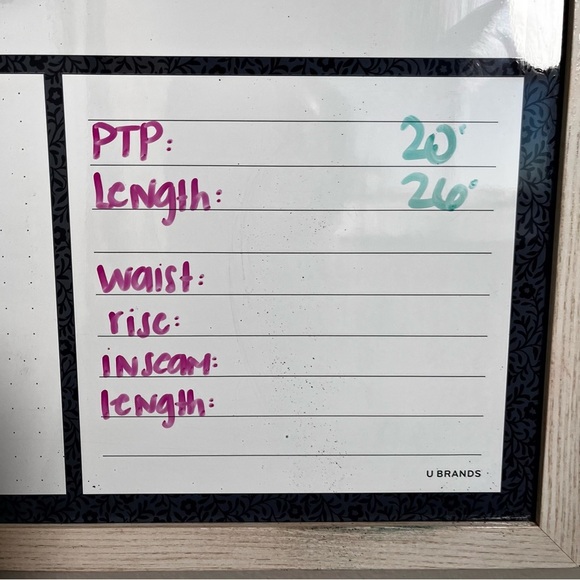 PTP: 20"
Length: 26"
waist:
rise:
inseam:
length:
U BRANDS